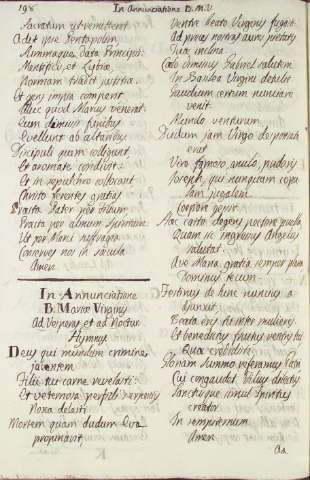 198
In Annunciatione B. M. V.
Sacratum ut remitteret.
Adit ipse Pentapolim
Summaque data Principi
Mansfredi, et Lystræ
Normam tradit justitiæ.
Et gens impia comperit
quod Marcus venerat:
Eum
Evellunt ab altaribus
Discipuli quem colligunt,
Et aromate condiunt:
Et in sepulchro collocant
Christo ferentes gratias
Præsta Pater per Filium
Præsta per almum Spiritum
Ut per Marci suffragia
Consernet nos in sæcula
Amen.
In Annunciatione
B. Mariæ Virginis
Ad Vesperas et ad Noctur.
Hymnus
Deus qui mundum crimine
jacentem
Filii tui carne revelasti:
Et veternosi perfidi serpentis
Noxa delasti
Mortem quam dudum Eva
propinavit,
Ventre beata Virginis fugasti
Ad preces nostras aures pietatis
Tuæ inclina
Cælo demissus Gabriel salutem
In Davidica Virgini detulit
Gaudium certum nunciare
venit
Mundo venturum.
Dudum jam Virgo desponsata
erat
Viro famoso, amulo, pudoris
Joseph, qui nunquam copulam
jugalem
Corpore gessit.
Hæc casto degens pectore puella
Quam ingressus Angelus
salutat
Ave Maria gratia semper plena
Dominus tecum.
Fertinus de hinc nuncius
adjunxit
Beata eris tu inter mulieres
Et benedictus fructus ventris tui
Quæ credidisti
Gloriam summo referamus Patri
Cui congaudet Filius dicatus
Sanctusque simul Spiritus
creator
In sempiternum
Amen